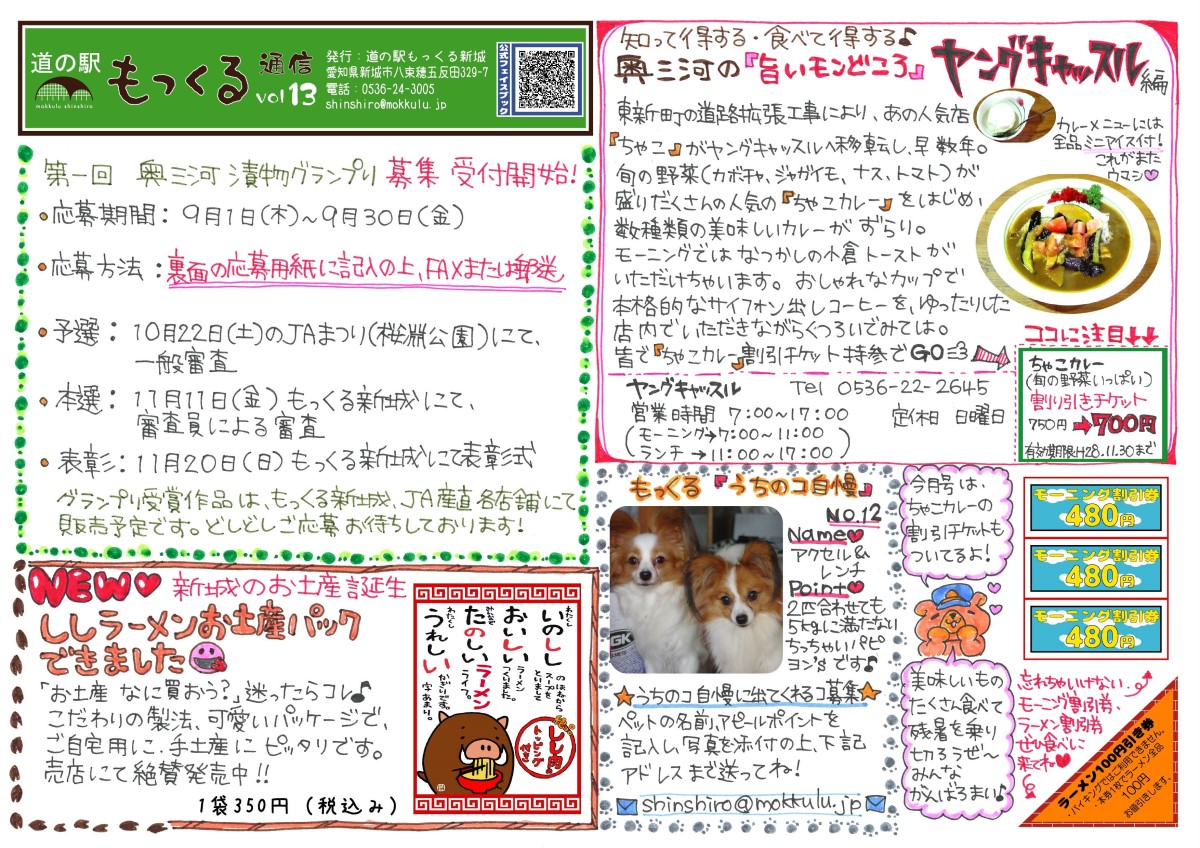 道の駅
mokkulu shinshiro
もっくる 通信
vol 13
発行：道の駅もっくる新城
愛知県新城市八束穂五反田329-7
電話：0536-24-3005
shinshiro@mokkulu.jp
公式フェイスブック
第一回 奥三河漬物グランプリ 募集 受付開始！
・応募期間：9月1日(木)～9月30日(金)
・応募方法：裏面の応募用紙に記入の上、FAXまたは郵送
・予選：10月22日(土)のJAまつり(桜淵公園)にて、
一般審査
・本選：11月11日(金)もっくる新城にて、
審査員による審査
・表彰：11月20日(日)もっくる新城にて表彰式
グランプリ受賞作品は、もっくる新城、JA産直各店舗にて
販売予定です。どしどしご応募お待ちしております！
NEW♥ 新城のお土産誕生
ししラーメンお土産パック
できました
「お土産 なに買おう？」迷ったらコレ♪
こだわりの製法、可愛いパッケージで、
ご自宅用に、手土産にピッタリです。
売店にて絶賛発売中！！
1袋350円（税込み）
いのしし
おいしい
ラーメン
たのしい
ラーメン
ライフ。
うれしい
かぎりです。
字あまり。
しし肉の
トッピング
付き
知って得する・食べて得する♪
奥三河の『旨いモンどころ』
ヤングキャッスル編
東新町の道路拡張工事により、あの人気店
『ちゃこ』がヤングキャッスルへ移転し、早数年。
旬の野菜(カボチャ、ジャガイモ、ナス、トマト)が
盛りだくさんの人気の『ちゃこカレー』をはじめ、
数種類の美味しいカレーがずらり。
モーニングではなつかしの小倉トーストが
いただけちゃいます。おしゃれなカップで
本格的なサイフォン出しコーヒーを、ゆったりした
店内でいただきながらくつろいでみては。
皆で『ちゃこカレー』割引チケット持参でGO
カレーメニューには
全品ミニアイス付！
これがまた
ウマシ♡
ココに注目↓↓
ヤングキャッスル Tel 0536-22-2645
営業時間 7:00～17:00 定休 日曜日
(モーニング→7:00～11:00
ランチ→11:00～17:00)
ちゃこカレー
(旬の野菜いっぱい)
割り引きチケット
750円→700円
有効期限H28.11.30まで
もっくる『うちのコ自慢』
NO.12
Name♥
アクセル＆
レンチ
Point♥
2匹合わせても
5kgに満たない
ちっちゃいパピ
ヨン'sです♪
★うちのコ自慢に出てくれるコ募集★
ペットの名前、アピールポイントを
記入し、写真を添付の上、下記
アドレスまで送ってね！
shinshiro@mokkulu.jp
今月号は、
ちゃこカレーの
割引チケットも
ついてるよ！
美味しいもの
たくさん食べて
残暑を乗り
切ろうぜ～
みんな
がんばろまい♪
モーニング割引券
480円
モーニング割引券
480円
モーニング割引券
480円
忘れちゃいけない、
モーニング割引券、
ラーメン割引券
ぜひ食べに
来てね♥
ラーメン100円引き券
・バイキングではご利用できません。
・本券1枚でラーメン全品
100円
お値引きします。